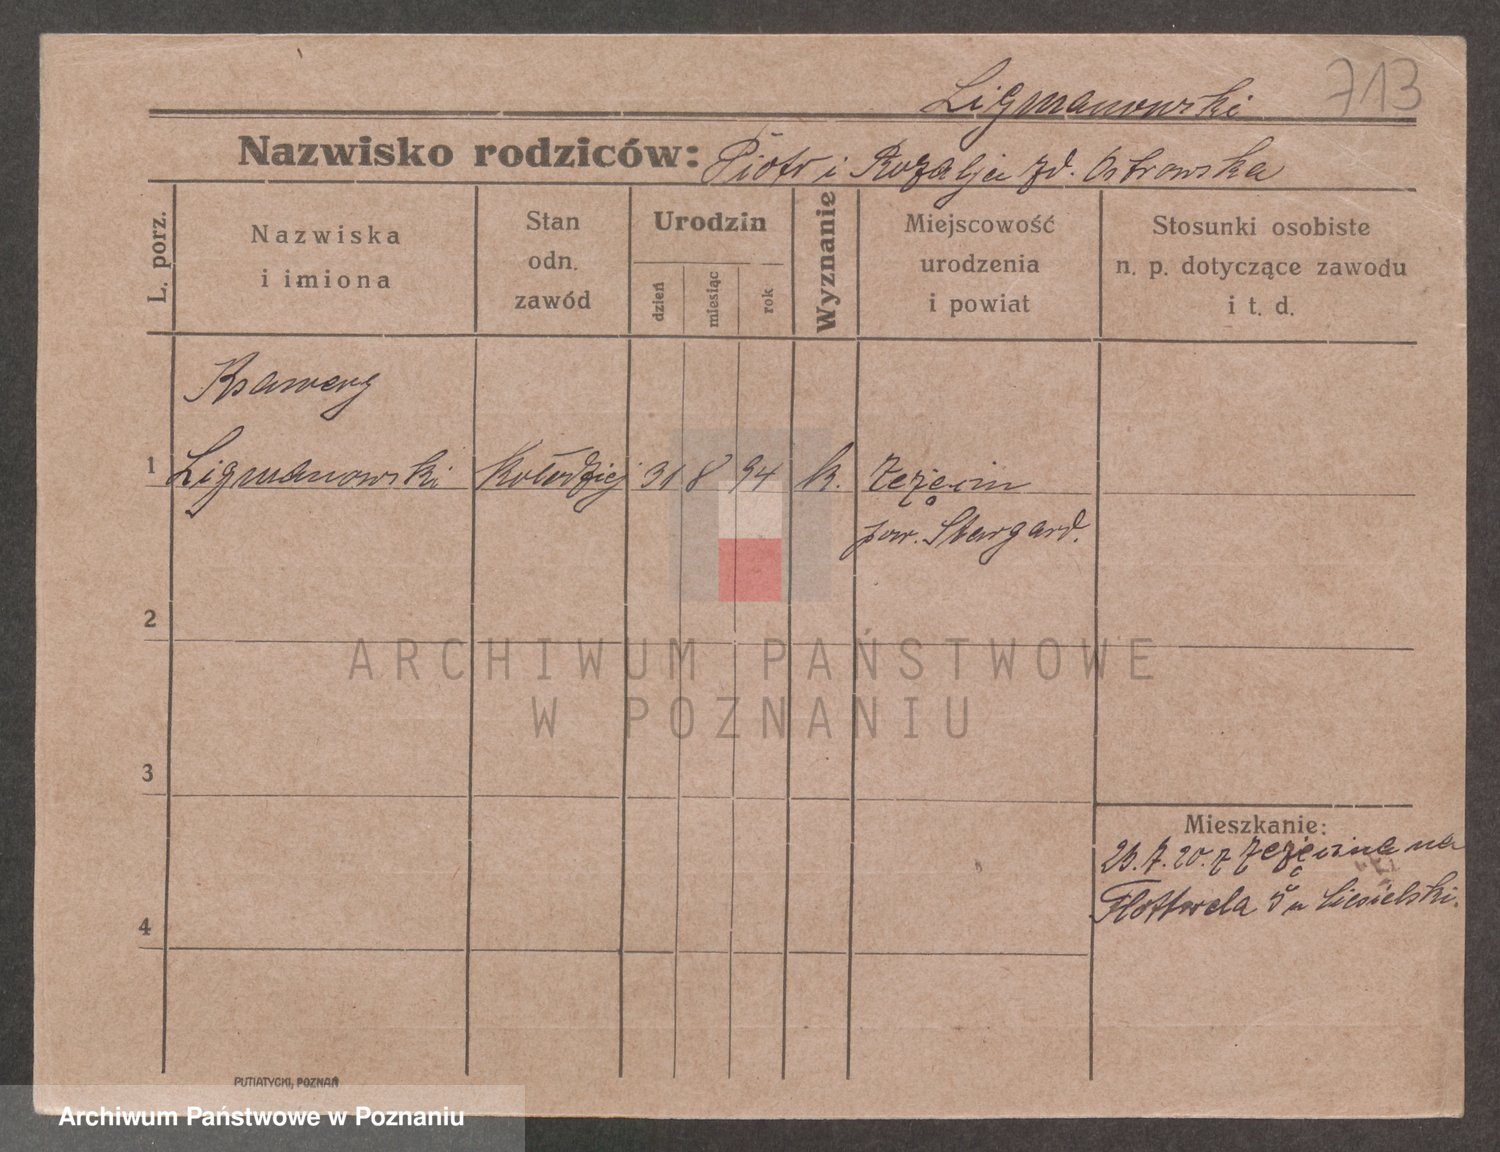 713
Ligmanowski
Nazwisko rodziców: Piotr i Rozalja zd. Ostrowska
L. porz.
Nazwiska
i imiona
Stan
odn.
zawód
Urodzin
dzień
miesiąc
rok
Wyznanie
Miejscowość
urodzenia
i powiat
Stosunki osobiste
n. p. dotyczące zawodu
i t. d.
Ksawery
1 Ligmanowski Kołodziej 31 8 94 k.
pow. Stargard.
2
3
4
Mieszkanie:
23.7.20. z na
Flottwela 5 u Ciesielski.
ARCHIWUM PAŃSTWOWE
W POZNANIU
PUTIATYCKI, POZNAŃ
Archiwum Państwowe w Poznaniu